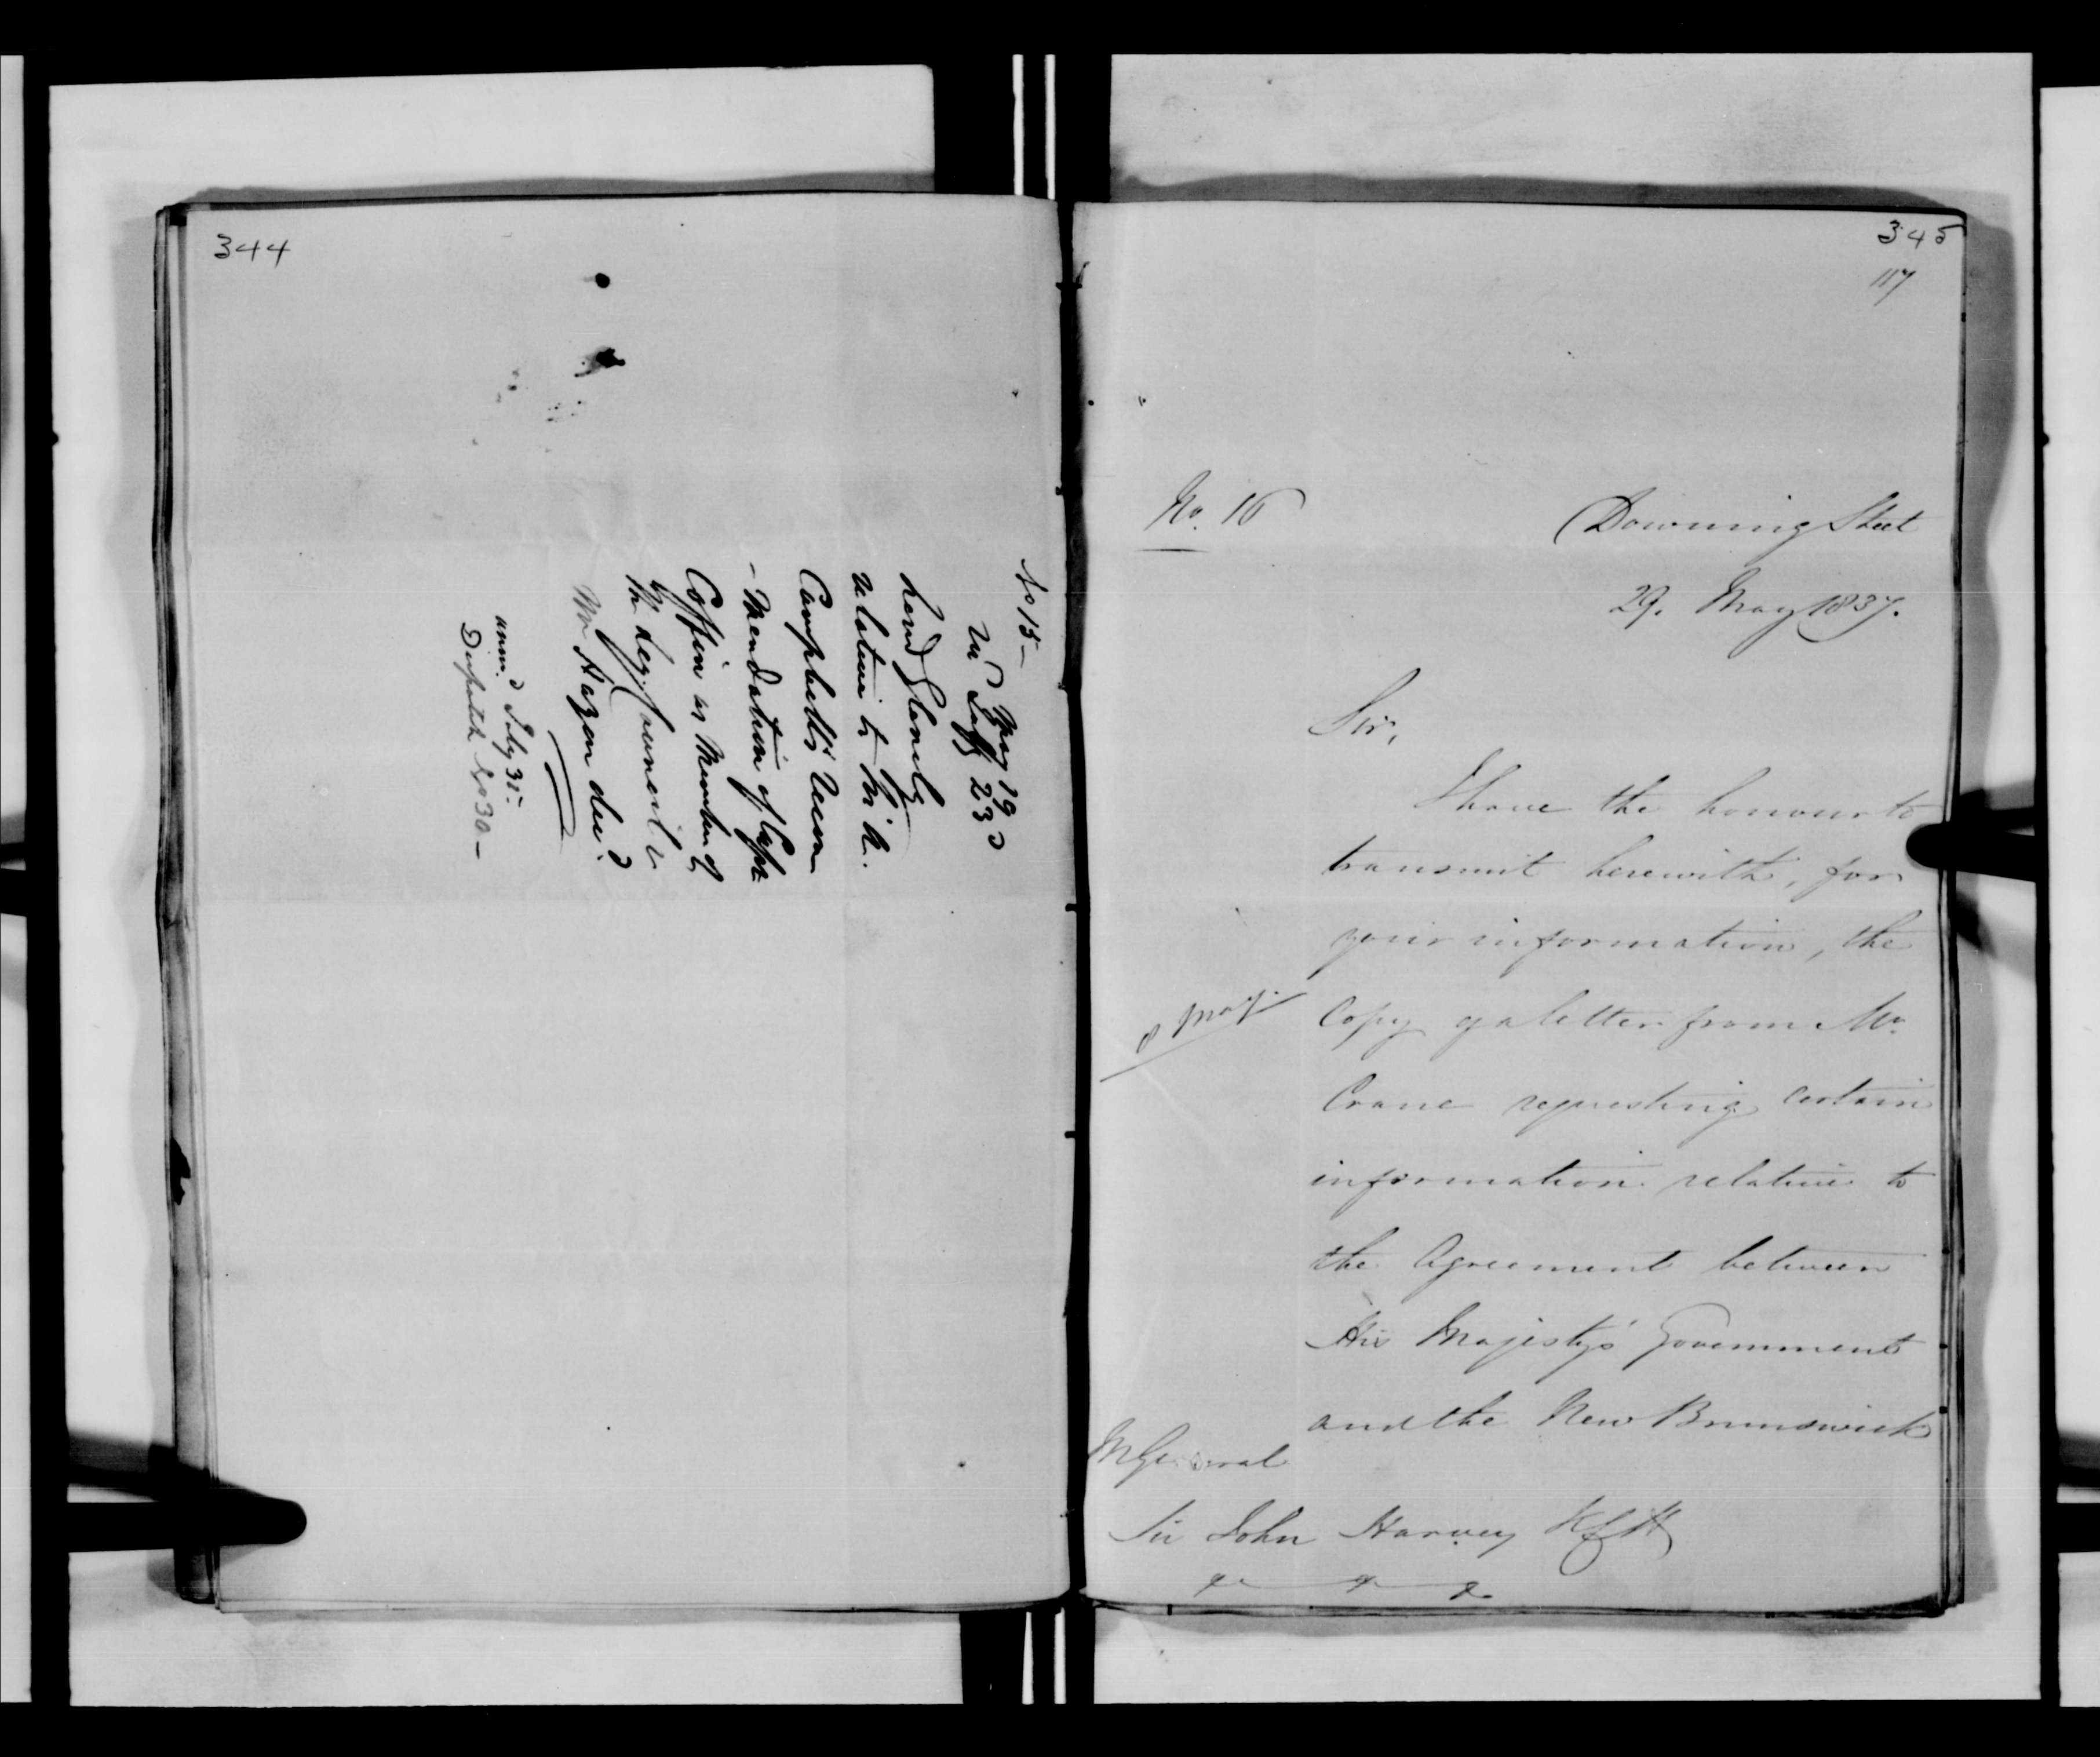 344
No 15 –
May 19
Rd July 23d
Lord Glenelg
relative to Sir A.
Campbell's recom
– mendation of Capt
Coffin as Member of
the Leg. Council v
Mr Hazen decd
answd July 31 –
Despatch No 30 –
345
117
No. 16
Downing Street
29. May 1837.
Sir,
I have the honour to
transmit herewith, for
your information, the
8 May
Copy of a letter from Mr.
Crane requesting certain
information relative to
the Agreement between
His Majesty's Government
and the New Brunswick
M General
Sir John Harvey KCH
&c &c &c